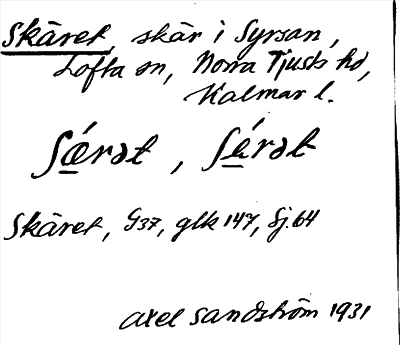 Skäret, skär i Syrsan,
Lofta sn, Norra Tjusts hd,
Kalmar l.
ʃǽrət, ʃérət
Skäret, G37, glk 147, Sj. 64
Axel Sandström 1931